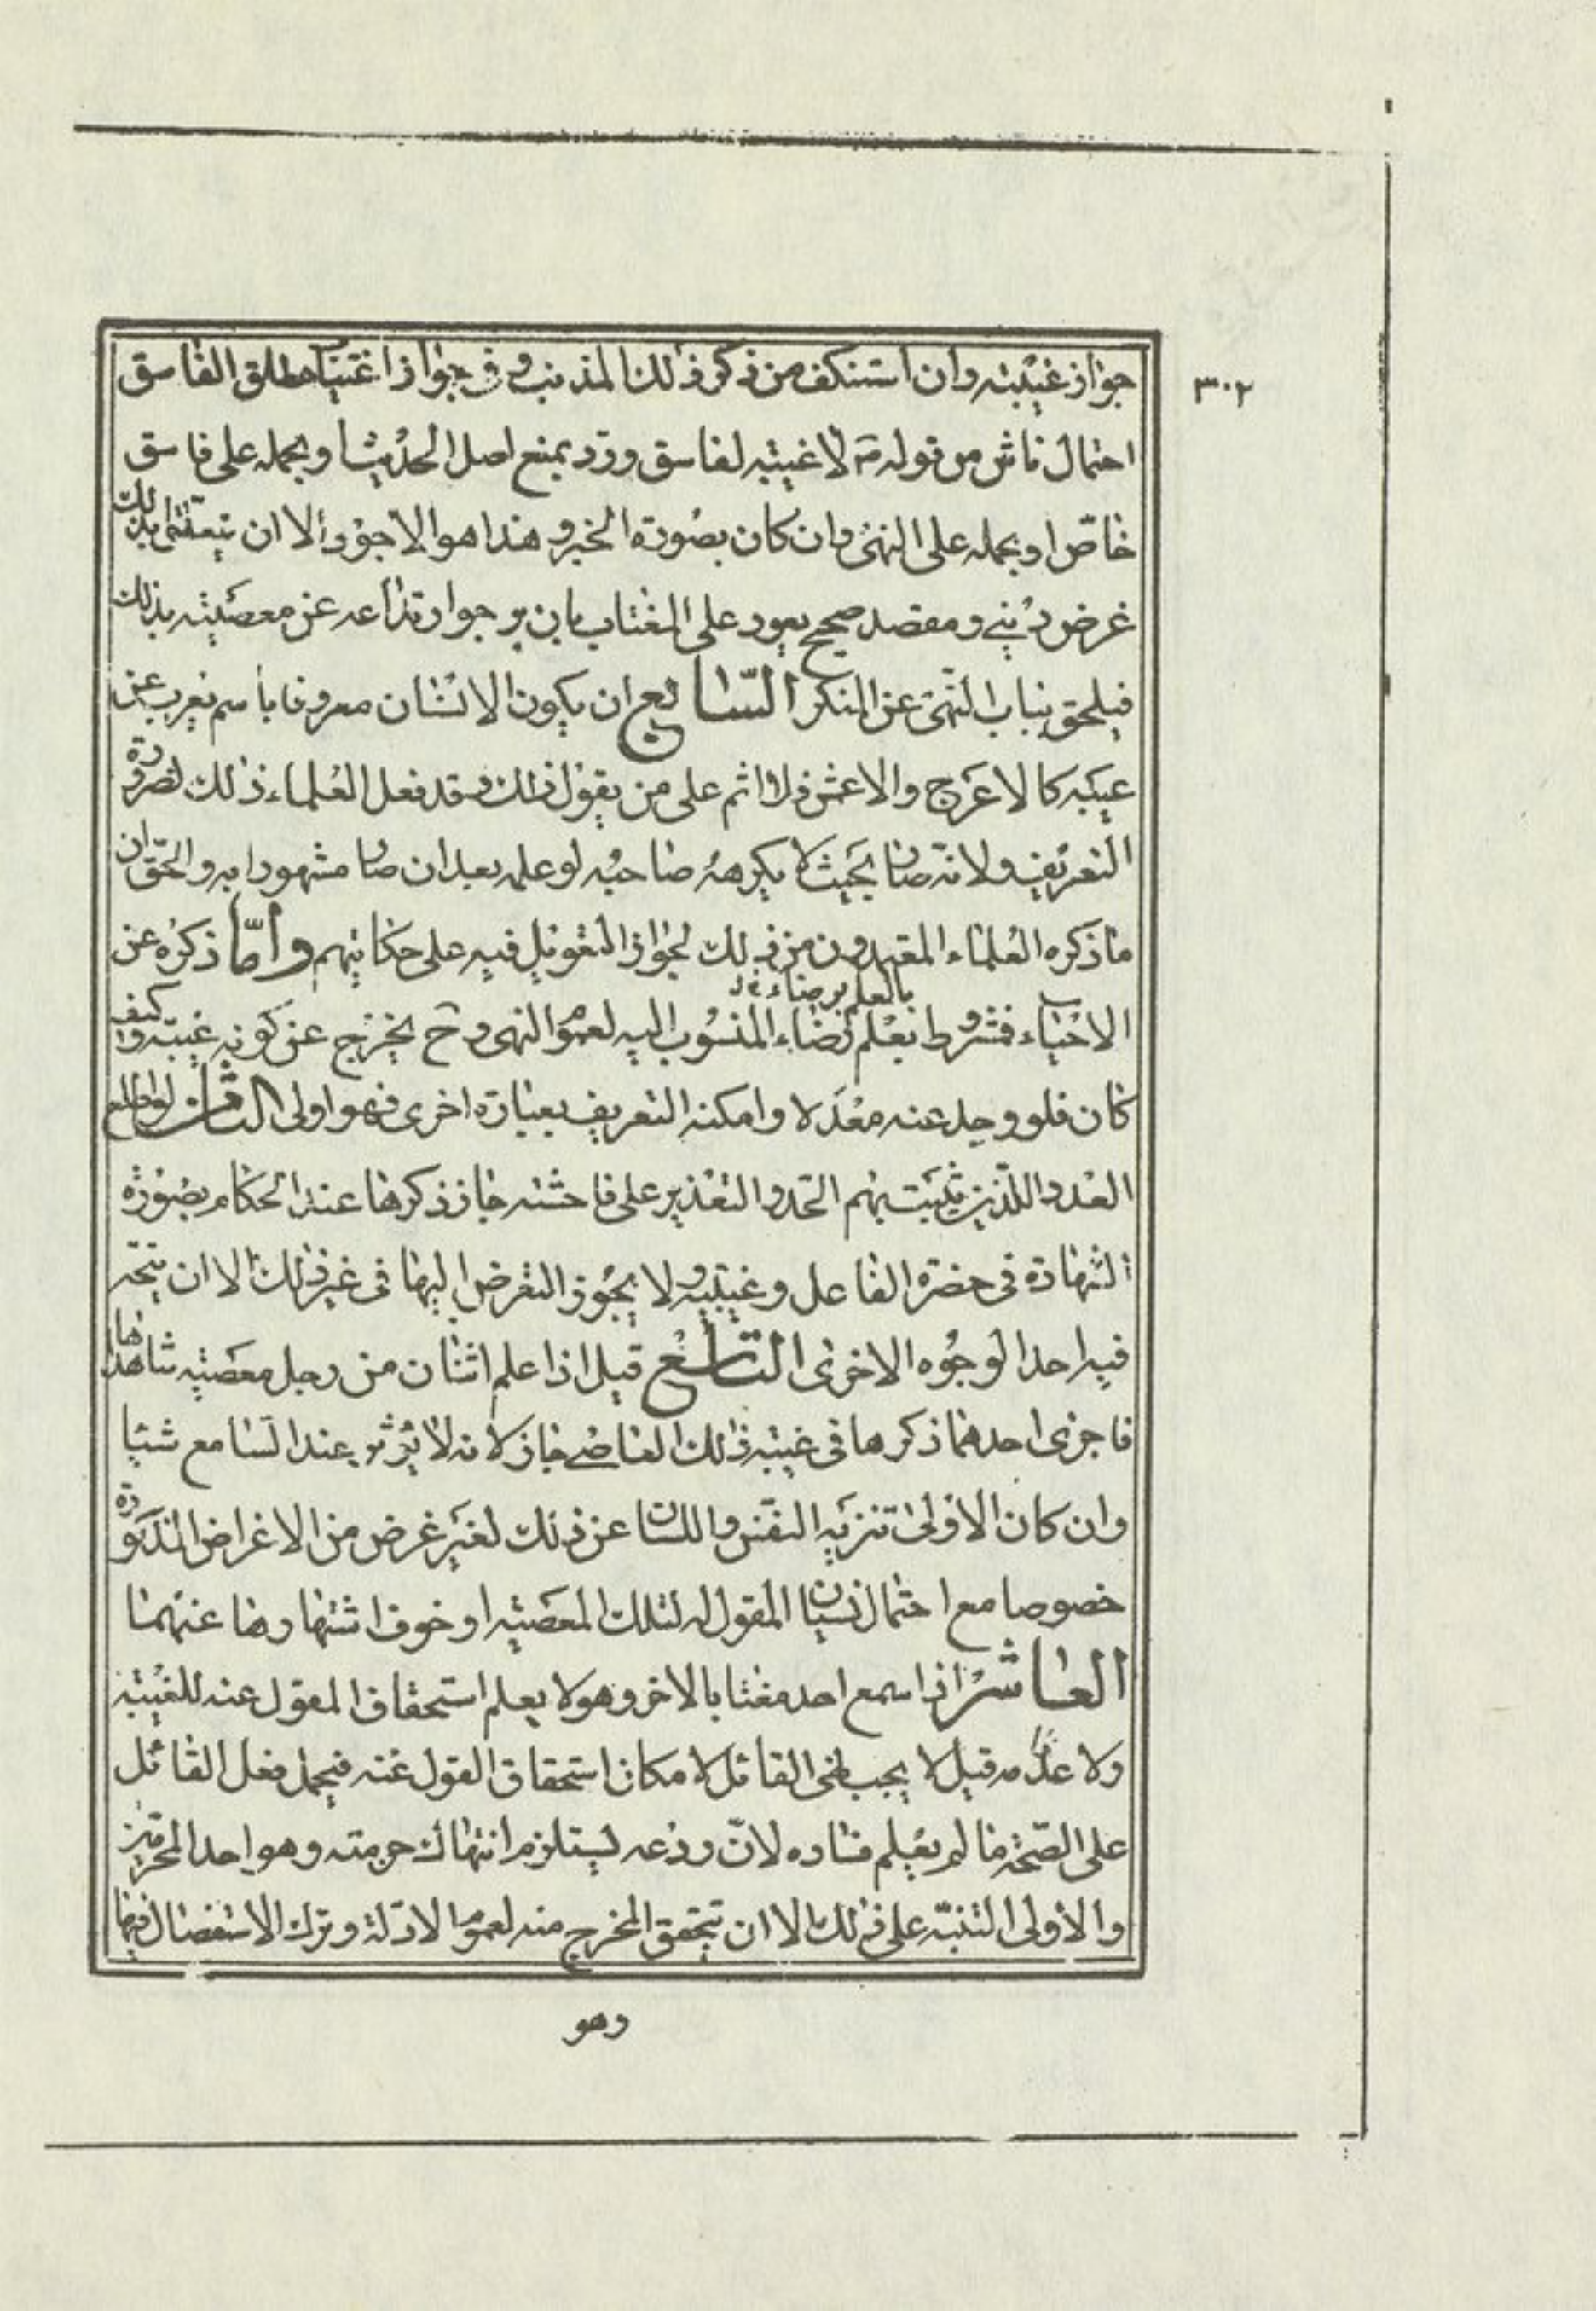 ٣٠٢
جواز غيبته وان استنكف من ذكر ذلك المذنب وفى جواز اغتياب مطلق الفاسق
احتمال ناش من قوله ص لا غيبته لفاسق وردّ بمنع اصل الحديث او بحمله على فاسق
خاصّ او بحمله على النهى وان كان بصورة الخبر وهذا هو الاجود الا ان يتعلّق بذلك
غرض دينى ومقصد صحيح يعود على المغتاب بان يرجو ارتداعه عن معصيته بذلك
فيلحق بباب النّهى عن المنكر السّابع ان يكون الانسان معروفا باسم يعرب عن
عيبه كالاعرج والاعمش فلا اثم على من يقول ذلك وقد فعل العلماء ذلك لضرورة
التعريف ولانّه صار بحيث لا يكرهه صاحبه لو علمه بعد ان صار مشهورا به والحقّ ان
ما ذكره العلماء المعتمدون من ذلك لجواز التعويل فيه على حكايتهم وامّا ذكره عن
الاحياء فمشروط بعلم رضاء المنسوب اليه لعموم النهى وح يخرج عن كونه غيبته وكيف
بالعلم برضاء
كان فلو وجد عنه معدلا وامكنه التعريف بعبارة اخرى فهو اولى الثامن لو اطلع
العدد اللذين يثبت بهم الحد والتعذير على فاحشته جاز ذكرها عند الحكام بصورة
الشهادة فى حضرة الفاعل وغيبته ولا يجوز التعرض اليها فى غير ذلك الا ان يتجه
فيه احد الوجوه الاخرى التاسع قيل اذا علم اثنان من رجل معصيته شاهداها
فاجرى احدهما ذكرها فى غيبته ذلك العاصى جاز لانه لا يؤثر عند السامع شيئا
وان كان الاولى تنزيه النفس واللسان عن ذلك لغير غرض من الاغراض المذكورة
خصوصا مع احتمال نسيان المقول له لتلك المعصيته او خوف اشتهارها عنهما
العاشر اذا سمع احد مغتابا بالاخر وهو لا يعلم استحقاق المقول عنه للغيبته
ولا عدمه قيل لا يجب نهى القائل لامكان استحقاق المقول عنه فيحمل فعل القائل
على الصّحة ما لم يعلم فساده لانّ ردعه يستلزم انتهاك حرمته وهو احد المحرّمين
والاولى التنبّه على ذلك الا ان يتحقق المخرج منه لعموم الادلّة وترك الاستفصال فيها
وهو